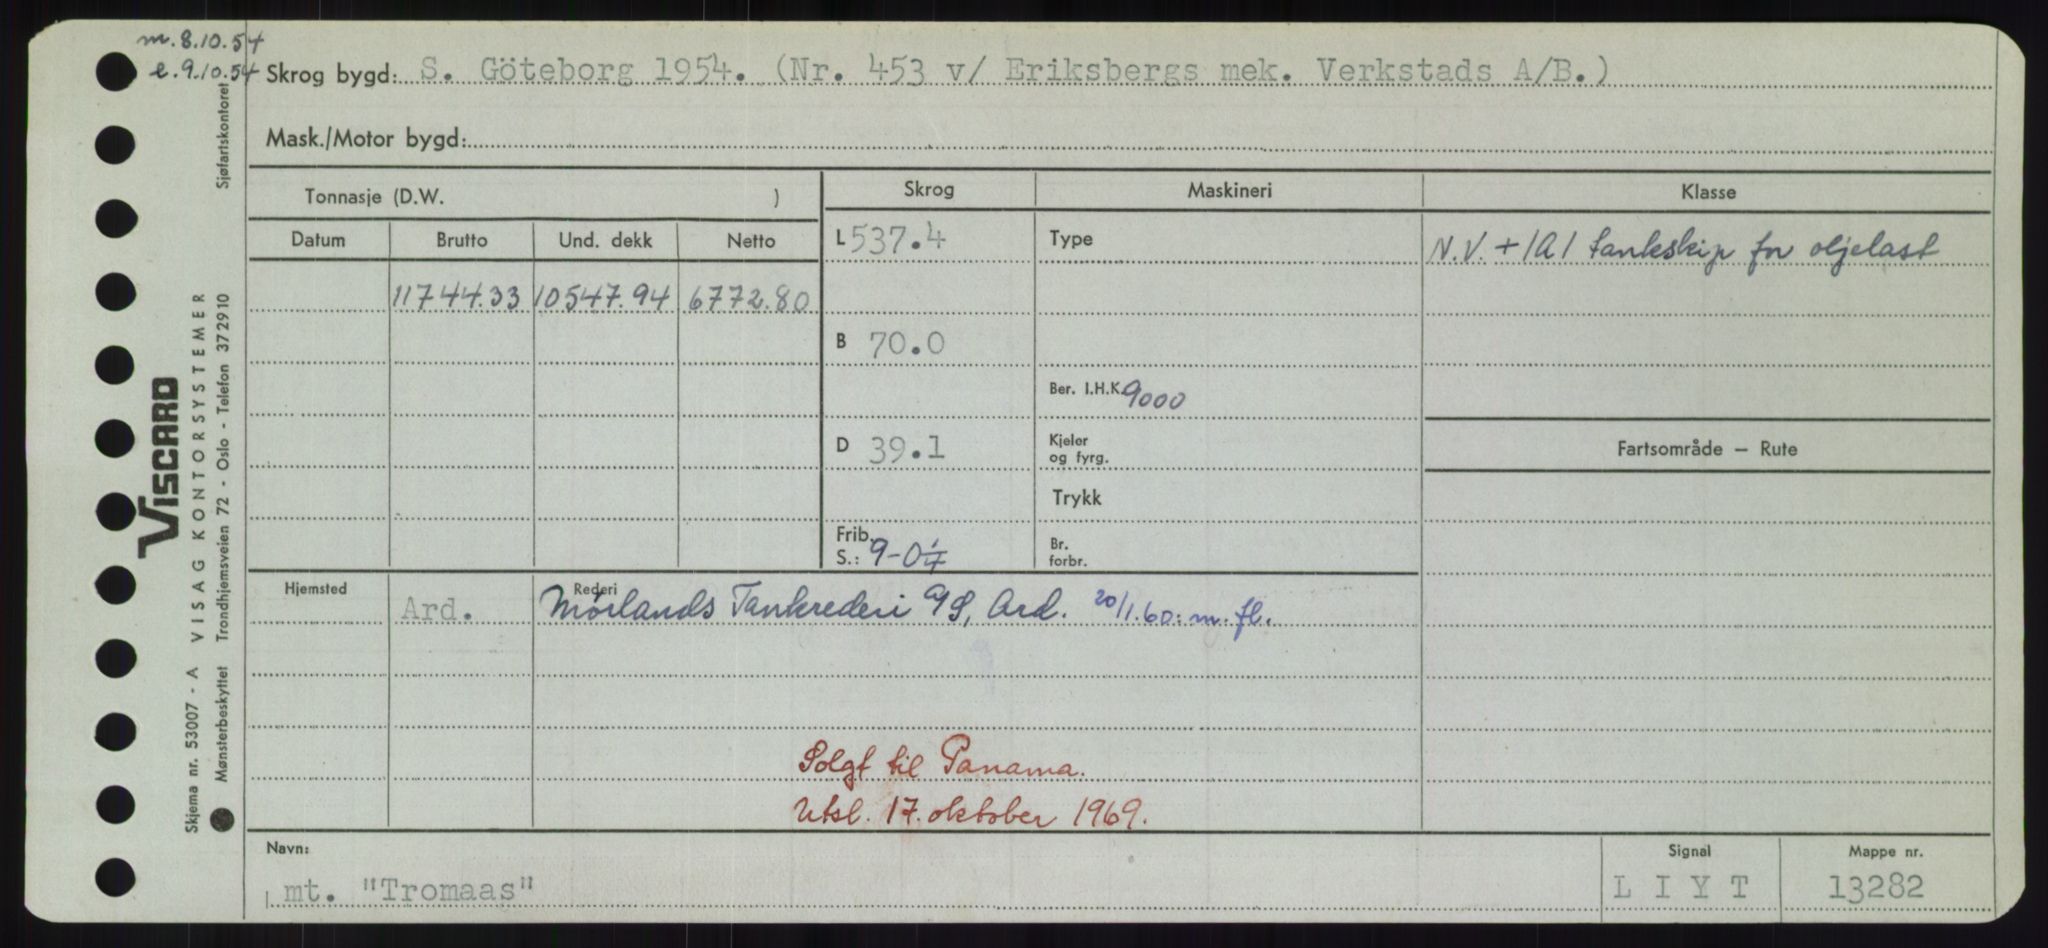 m. 8.10.54
e. 9.10.54
Skrog bygd: S. Göteborg 1954. (Nr. 453 v/ Eriksbergs mek. Verkstads A/B.)
Mask./Motor bygd:
Tonnasje (D.W. )
Skrog
Maskineri
Klasse
Datum
Brutto
Und. dekk
Netto
L 537.4
Type
N.V. + 1A1 tankskip for oljelast
11744.33 10547.94 6772.80
B 70.0
Ber. I.H.K. 9000
D 39.1
Kjeler
og fyrg.
Fartsområde — Rute
Trykk
Frib.
S.: 9-0¼
Br.
forbr.
Hjemsted
Ard.
Rederi
Mørlands Tankrederi A/S, Ard. 20/1.60: m. fl.
Solgt til Panama.
Utsl. 17. oktober 1969.
Navn:
mt. "Tromaas"
Signal
L I Y T
Mappe nr.
13282
Sjøfartskontoret
VISCARD
VISAG KONTORSYSTEMER
Trondhjemsveien 72 - Oslo - Telefon 372910
Skjema nr. 53007 - A
Mønsterbeskyttet